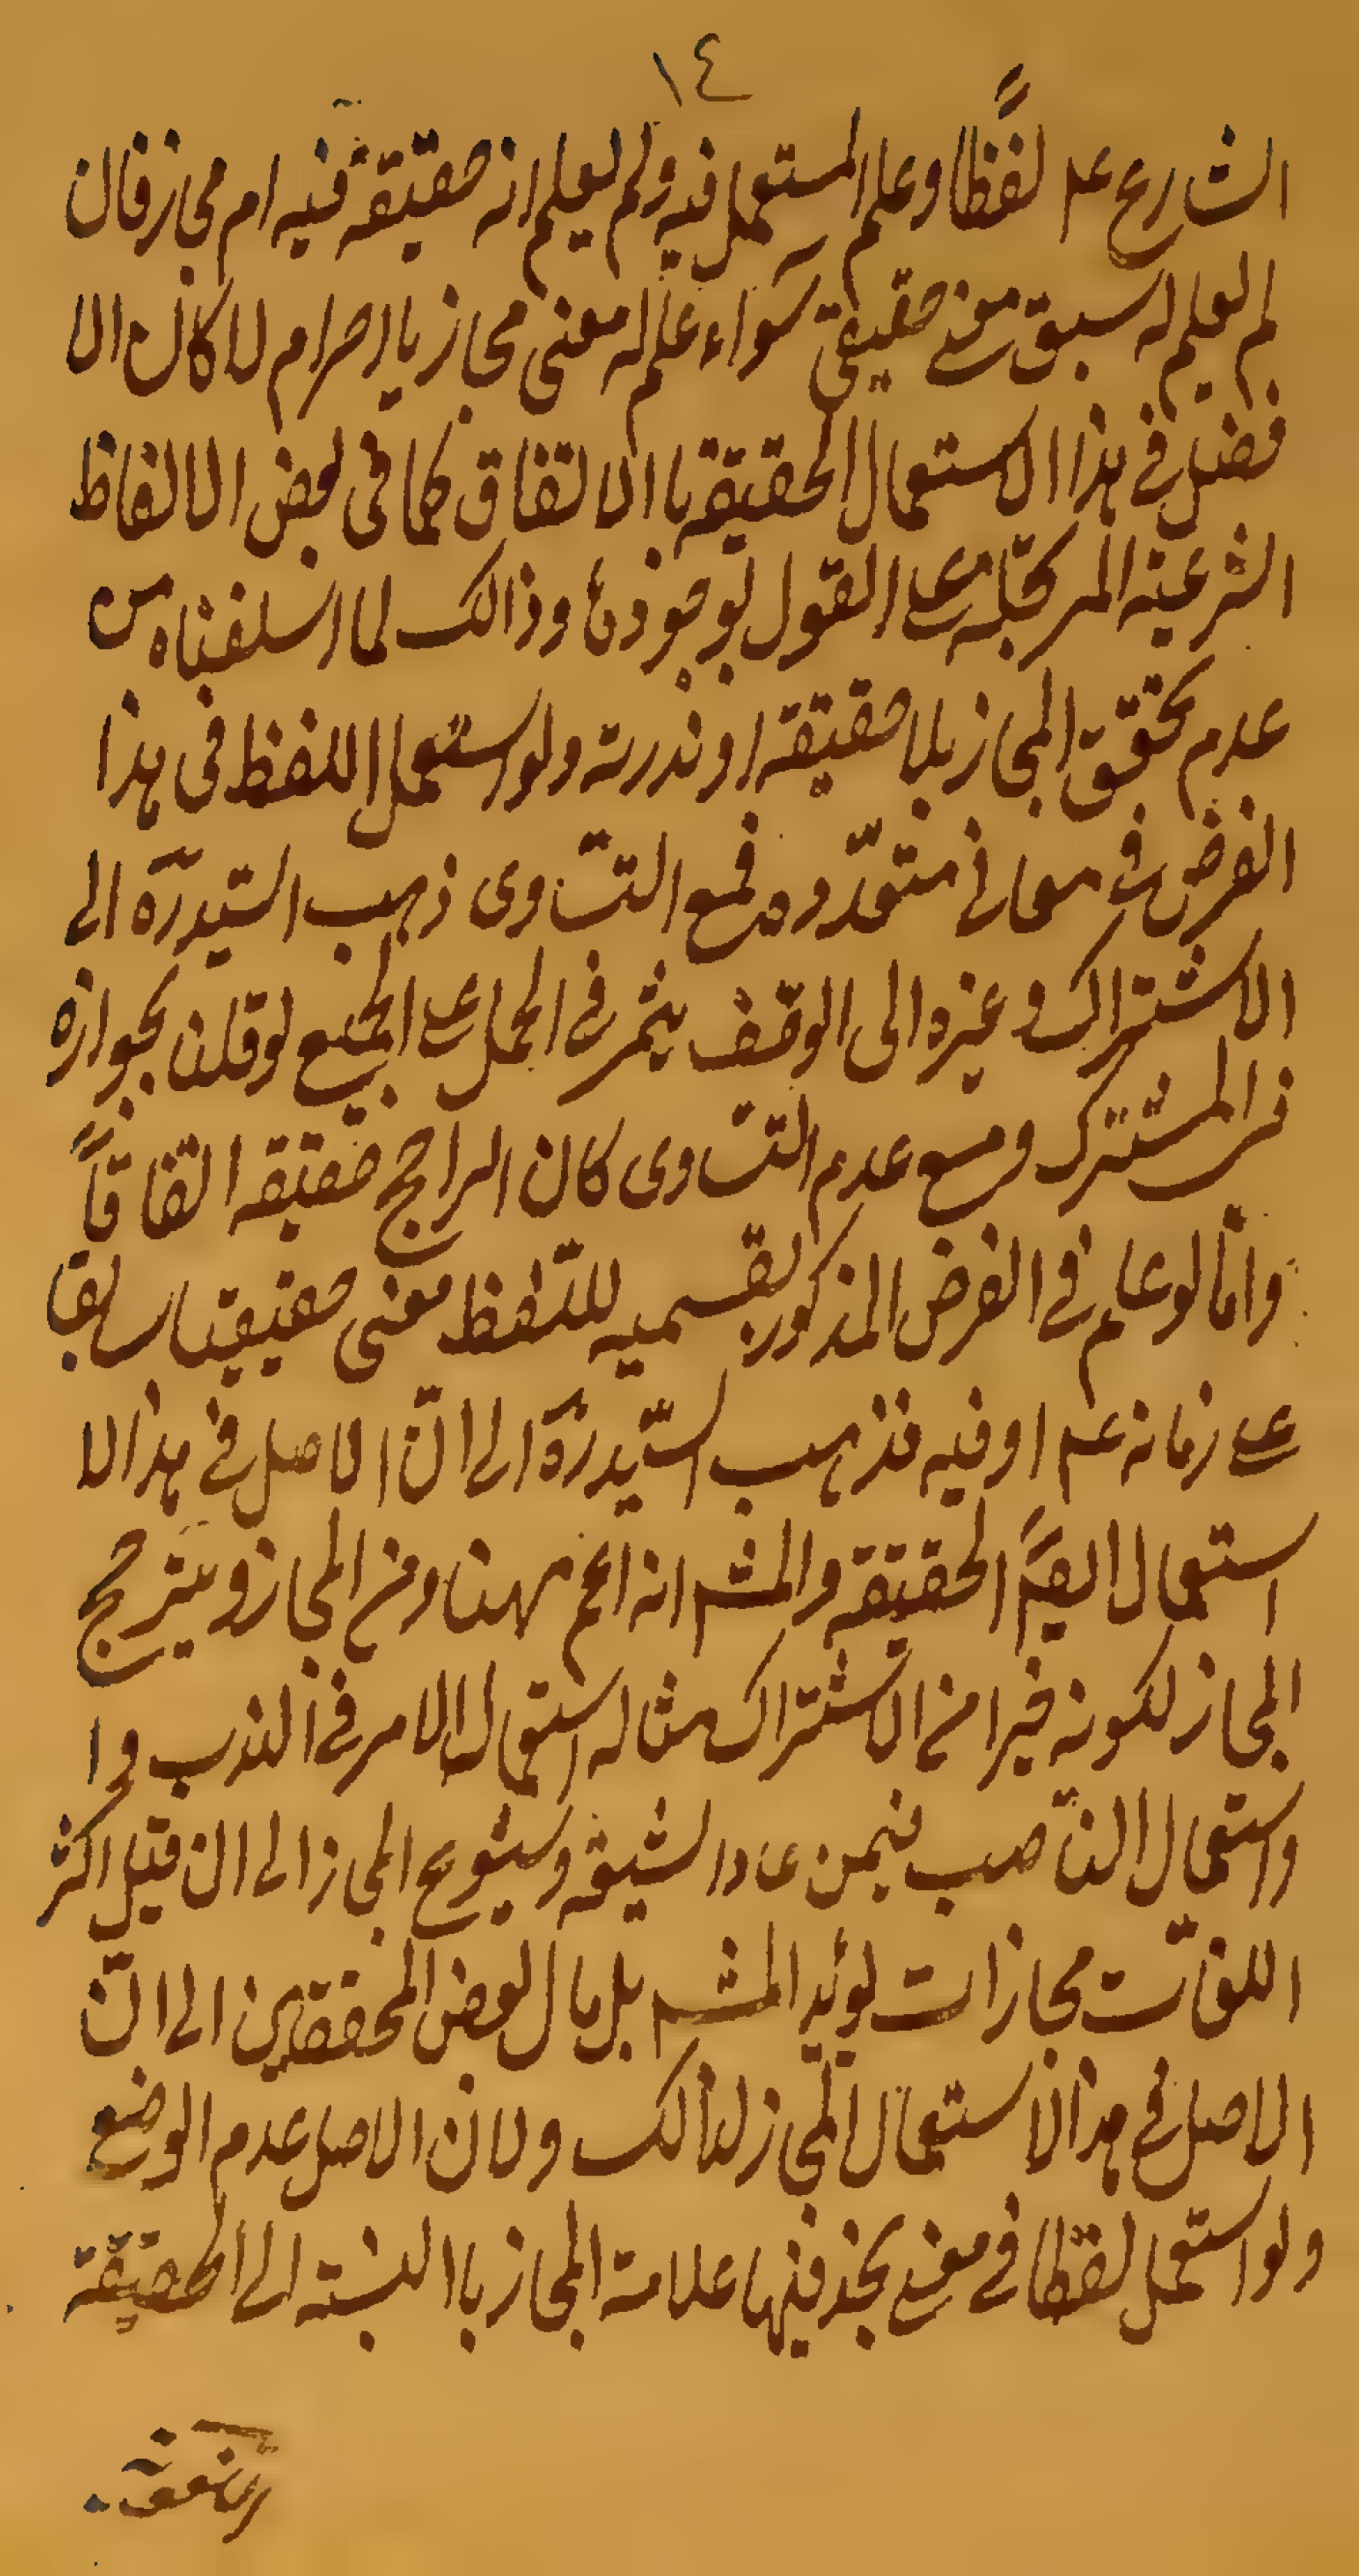 ١٤
الشارع عم لفظاً وعلم المستعمل فيه ولم يعلم انه حقيقة فيه ام مجاز فان
لم يعلم له سبق معنى حقيقى سواء علم له معنى مجازيا اخر ام لا كان الا
صل فى هذا الاستعمال الحقيقة باالاتفاق كما فى بعض الالفاظ
الشرعية المرتجلة على القول بوجودها وذالك لما اسلفناه من
عدم تحقق المجاز بلا حقيقة او ندرته ولو استعمل اللفظ فى هذا
الفرض فى معانى متعدّده فمع التساوى ذهب السّيد ره الى
الاشتراك وغيره الى الوقف يثمر فى الحمل على الجميع لو قلنا بجوازه
فى المشترك ومع عدم التساوى كان الراجح حقيقة اتفاقاً
وامّا لو علم فى الفرض المذكور بقسميه للّفظ معنى حقيقيا سابقا
على زمانه عم او فيه فذهب السّيد ره الى انّ الاصل فى هذا الا
استعمال ايضً الحقيقة والمشهـ انه اعم مهنا ومن المجاز ويترجح
المجاز لكونه خيرا من الاشتراك مثاله استعمال الامر فى الندب وا
واستعمال النّاصب فيمن عادا لشيعة وشيوع المجاز الى ان قيل اكثر
اللغات مجازات يؤيد المشهـ بل مال بعض المحققين الى انّ
الاصل فى هذا الاستعمال المجاز لذالك ولان الاصل عدم الوضع
ولو استعمل لفظا فى معنى يجد فيها علامة المجاز باالنسبة الى الحقيقة